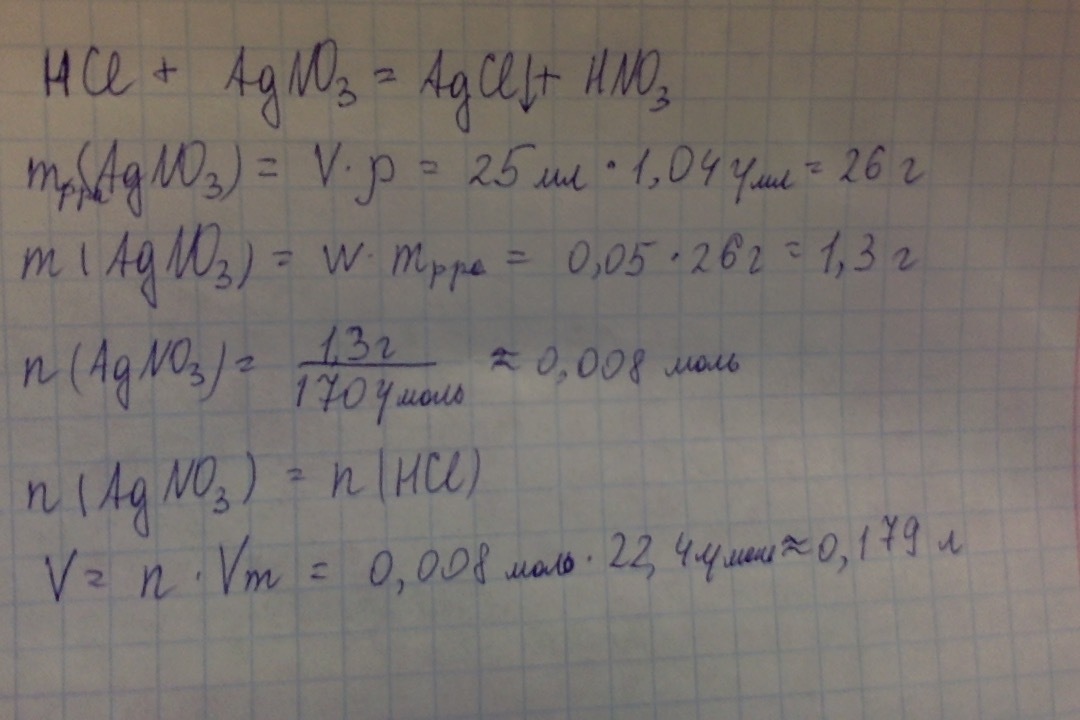 HCl + AgNO3 = AgCl↓ + HNO3
mрра(AgNO3) = V · ρ = 25 мл · 1,04 г/мл = 26 г
m(AgNO3) = w · mрра = 0,05 · 26г = 1,3 г
n(AgNO3) = 1,3г / 170 г/моль ≈ 0,008 моль
n(AgNO3) = n(HCl)
V = n · Vm = 0,008 моль · 22,4 л/моль ≈ 0,179 л